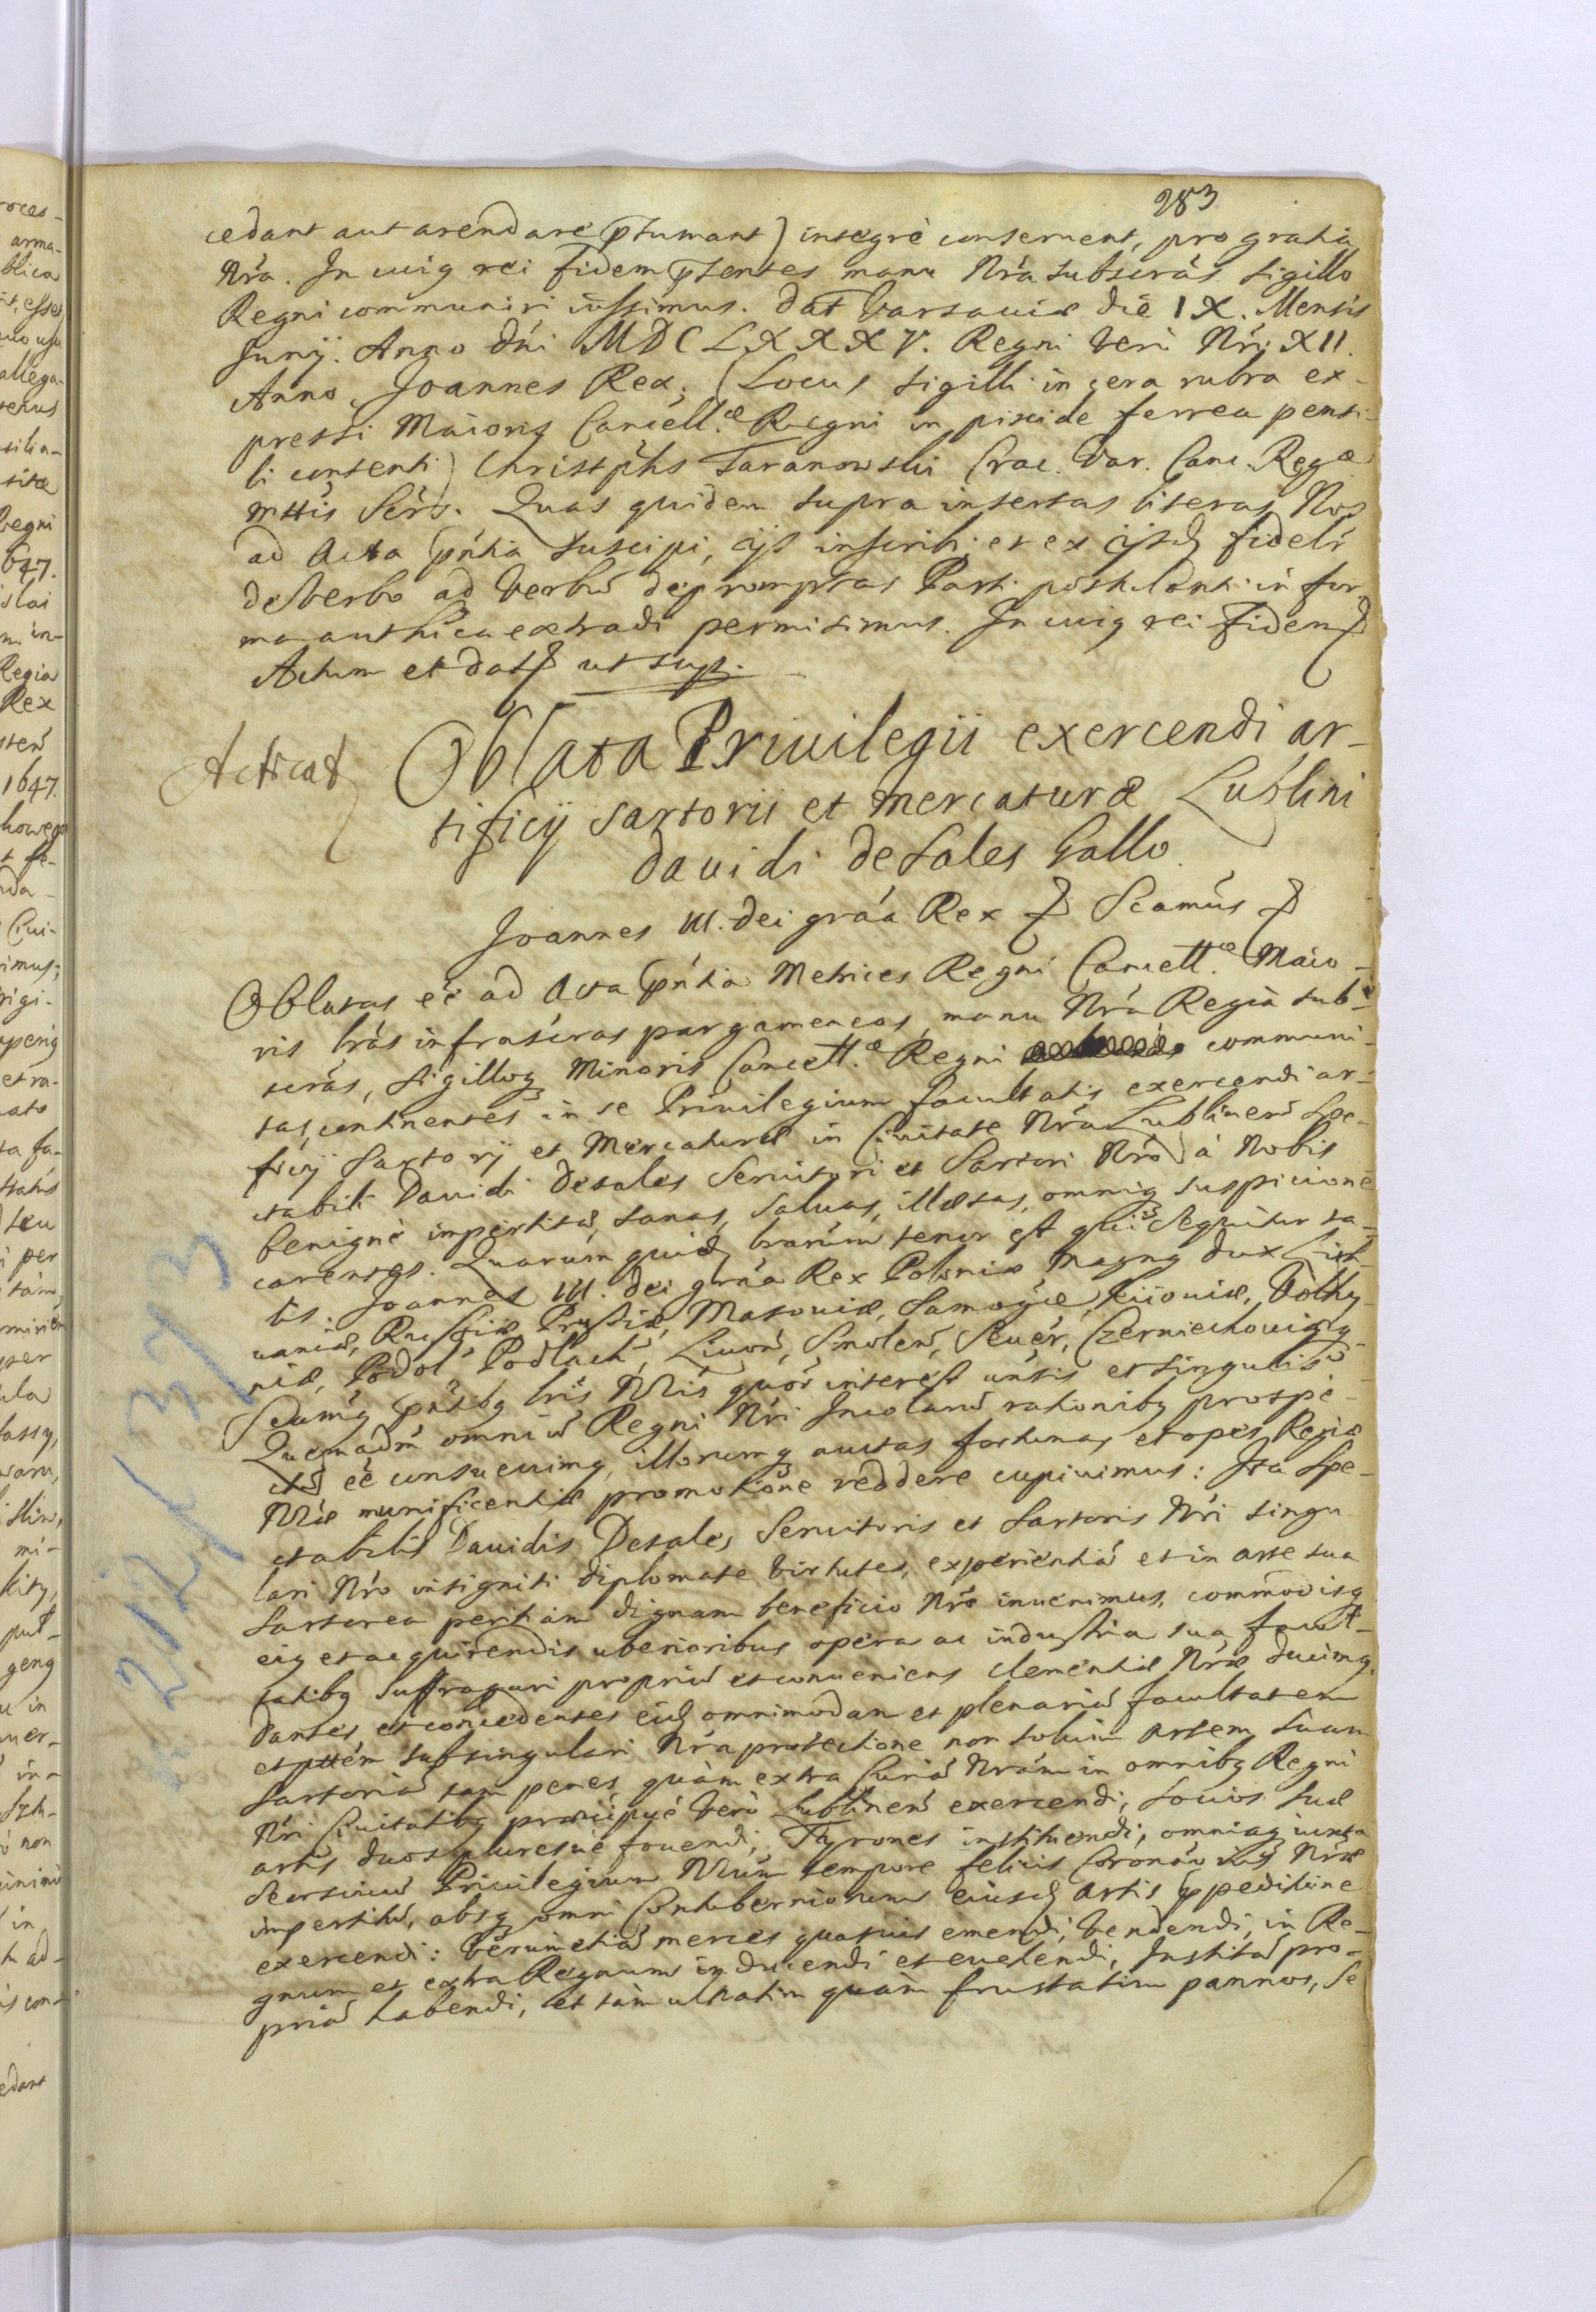 283
cedant aut arendare p̃sumant) integrè conseruent, pro gratia
Nrá. In cuiq rei fidem p̃sentes manu Nrá subscrás sigillo
Regni communiri iussimus. Dat Varsauiæ die IX. Mensis
Junij. Anno Dni MDCLXXXV. Regni Verò Nri XII.
Anno, Joannes Rex, (Locus sigilli in cera rubra ex-
pressi Maioris Cancell.æ Regni in pixide ferrea pensi-
li contenti) Christphs Taranowski Crac. Var. Canc. Regæ
Mttis Secrs. Quas quidem supra insertas literas Nos
ad Acta pńtia suscipi, ijs inscribi et ex ijsd fidelr
de Verbo ad Verbú depromptas Parti postulanti in for-
ma authica extradi permisimus. In cuiq rei fidem
Actum et dat ut sup.
Acticat Oblata Priuilegii exercendi ar-
tificij sartorii et mercaturæ Lublini
Dauidi de Sales Gallo.
Joannes III. Dei gráa Rex Scamús
Oblatas eé ad Acta pńtia Metrices Regni Cancell.æ Maio-
ris lrás infrascras pargameneas, manu Nrá Regiá sub-
scrás, sigilloq Minoris Cancell.æ Regni communi-
tas, continentes in se Priuilegium facultatis exercendi ar-
ficij Sartorij et Mercaturæ in Ciuitate Nrá Lublinen Spe-
ctabili Dauidi Desales Seruitori et Sartori Nro á Nobis
benignè impertitú, sanas, saluas, illæsas, omniq suspicione
carentes. Quarum quid lrarúm tenor est qui seqúitur ta-
lis. Joannes III. Dei gráa Rex Poloniæ Magnq Dux Lith-
uaniæ, Russiæ Prussiæ, Masouiæ, Samogiæ, Kiiouiæ, Volhy-
niæ, Podol Podlach, Liuon, Smolen, Seuer, Czerniechouiæq
Scamq pńtibq lris Nris quor interest unsis et singulis
Quemadm omniú Regni Nri Incolarú rationibq prospe-
ctú eé consueuimq, illorumq auctas fortunas et opes Regiæ
Nræ munificentiæ promotióne reddere cupiuimus: Ita Spe-
ctabilis Dauidis Desales, Seruitoris et Sartoris Nri singu
lari Nro insigniti diplomate Virtutes, experientiá et in arte sua
Sartorea peritiam dignam beneficio Nro inuenimus, commodisq
eiq et acquirendis uberioribus opera ac industria sua facul-
tatibq suffragari propriú et conueniens clementiæ Nræ ducimq,
Dantes et concedentes eid omnimodam et plenariá facultatem
et pttém sub singulari Nrá protectione non solum Artem Suam
Sartoriá tam penes quàm extra Curiá Nrám in omnibq Regni
Nri Ciuitatibq præcipué Verò Lublinen exercendi, Socios suæ
artis duos pluresue fouendi, Tyrones instituendi, omniaq iuxta
Seorsiuú Priuilegium Nrúm tempore felicis Coronáo[nis] Nræ
impertitú, absq omni Contuberniorum eiusd Artis ppeditione
exercendi: Verúm etiá merces quasuis emendi, Vendendi, in Re-
gnum et extra Regnum inducendi et euehendi, Institá pro-
priá habendi, et tàm ulnatim quàm frustatim pannos, Se
212/33